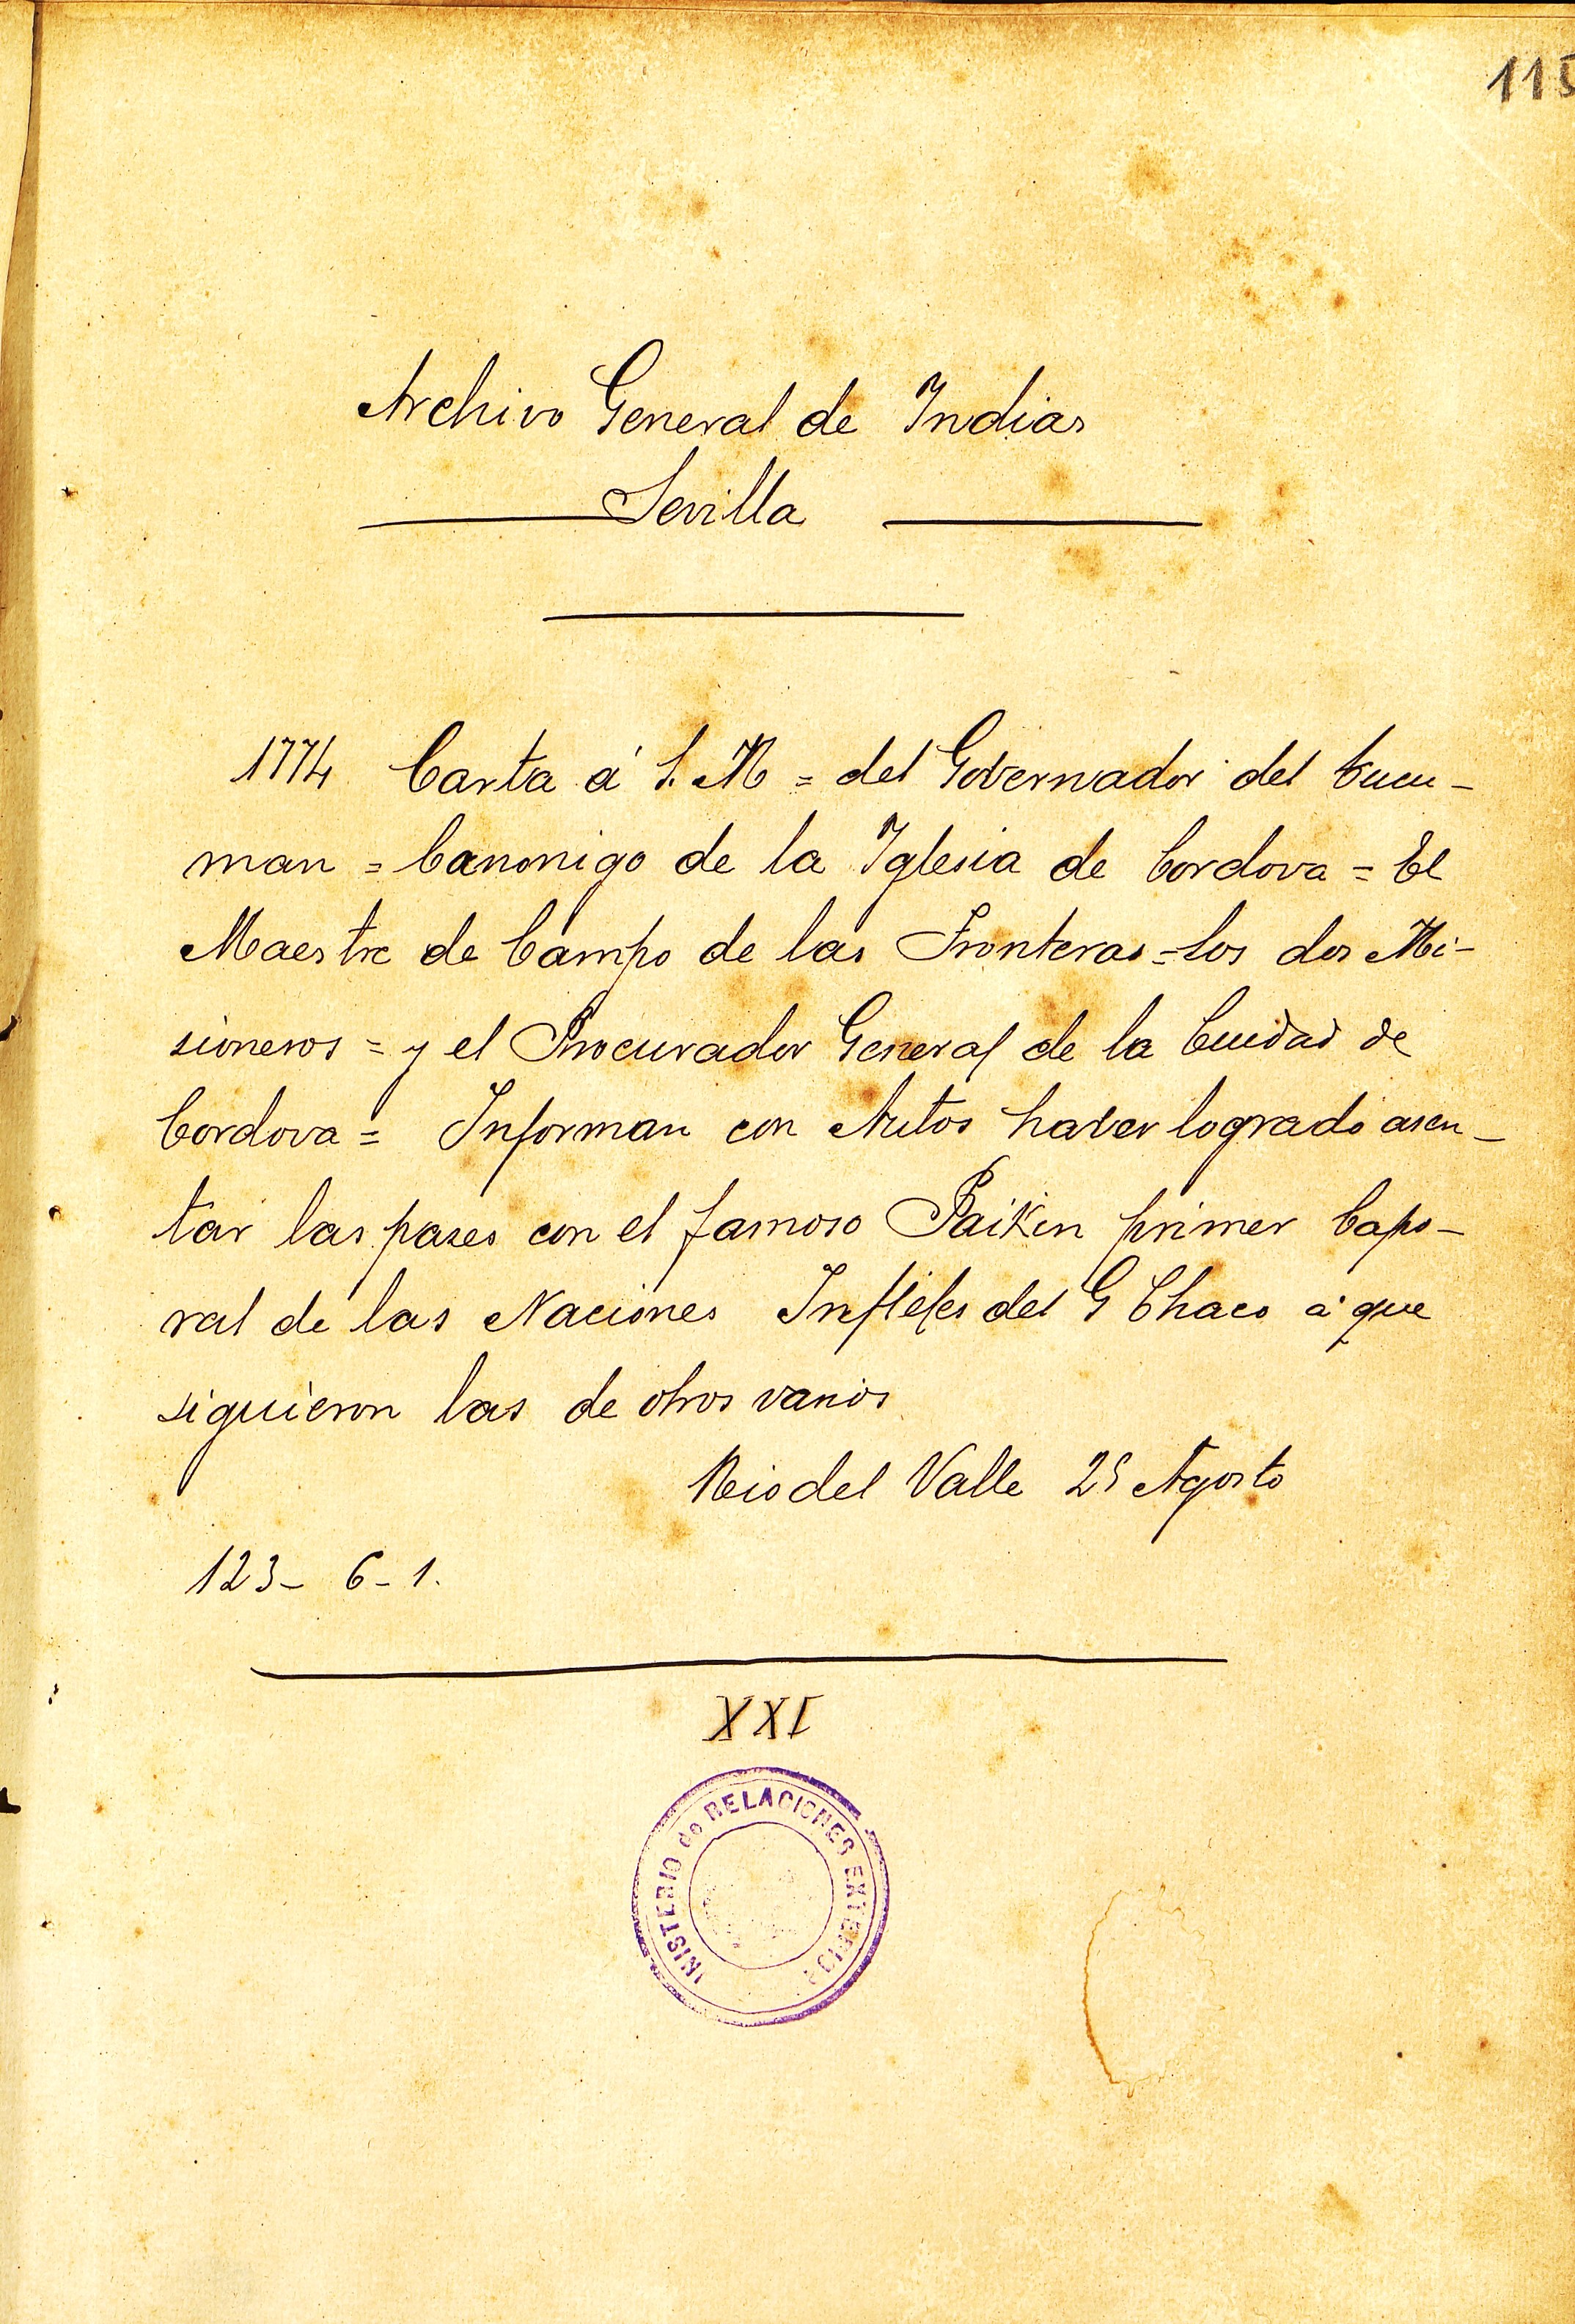 115
Archivo General de Indias
Sevilla
1774 Carta á S. M = del Governador del tucu-
man = Canonigo de la Iglesia de Cordova = El
Maestre de Campo de las Fronteras = Los dos Mi-
sioneros = y el Procurador General de la Ciudad de
Cordova = Informan con Autos haver logrado asen-
tar las pases con el famoso Paikin primer Capo-
ral de las Naciones Infieles del G Chaco a que
siguieron las de otros varios
Rio del Valle 25 Agosto
123- 6-1.
XXI
INISTERIO de RELACIONES EXTERIOR